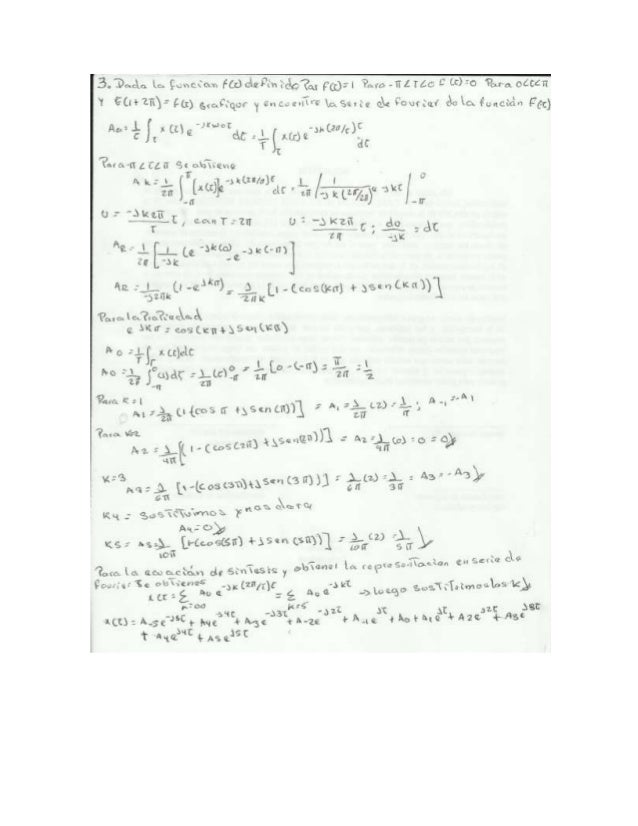 3. Dada la funcion f(t) definido Por f(t)=1 Para -π<t<0 f(t)=0 Para 0<t<π
Y f(t+2π)=f(t) Grafique y encuentre la Serie de fourier de la función f(t)
= 1/T ∫ x(t) e^-jkω0t dt = 1/T ∫ x(t) e^-jk(2π/T)t dt
Para -π<t<π Se obtiene
Ak = 1/2π ∫ [x(t)] e^-jk(2π/2π)t dt = 1/2π | 1/-jk(2π/2π) e^-jkt | 0 -π
U = -jk2π/T t, con T=2π U = -jk2π/2π t; du/-jk = dt
= 1/2π [1/-jk (e^-jk(0) - e^-jk(-π))]
= 1/-j2πk (1-e^jkπ) = j/2πk [1-(cos(kπ) + jsen(kπ))]
Para la Propiedad
e^jkπ = cos(kπ + jsen(kπ)
A0 = 1/T ∫ x(t)dt
A0 = 1/2π ∫ (1)dt = 1/2π (t) 0 -π = 1/2π [0-(-π)] = π/2π = 1/2
Para K=1
A1 = j/2π (1-(cos π + jsen(π))] = A1 = j/2π (2) = j/π ; A-1 = -A1
Para K=2
A2 = j/4π [1-(cos(2π) + jsen(2π))] = A2 = j/4π (0) = 0 = 0
K=3
= j/6π [1-(cos(3π)+jsen(3π))] = j/6π (2) = j/3π = A3 = -A3
K4 = Sustituimos y nos dara
A4=0
K5 = A5 = j/10π [1-(cos(5π) + jsen(5π))] = j/10π (2) = j/5π
Para la ecuación de Sintesis y obtener la representacion en serie de
fourier Se obtienes
x(t) = Σ A0 e^-jk(2π/T)t = Σ A0 e^-jkt → luego sustituimos los K
x(t) = A-5e^-j5t + A4e^-j4t + A-3e^-j3t + A-2e^-j2t + A-1e^jt + A0 + A1e^jt + A2e^j2t + A3e^j3t
+ A4e^j4t + A5e^j5t